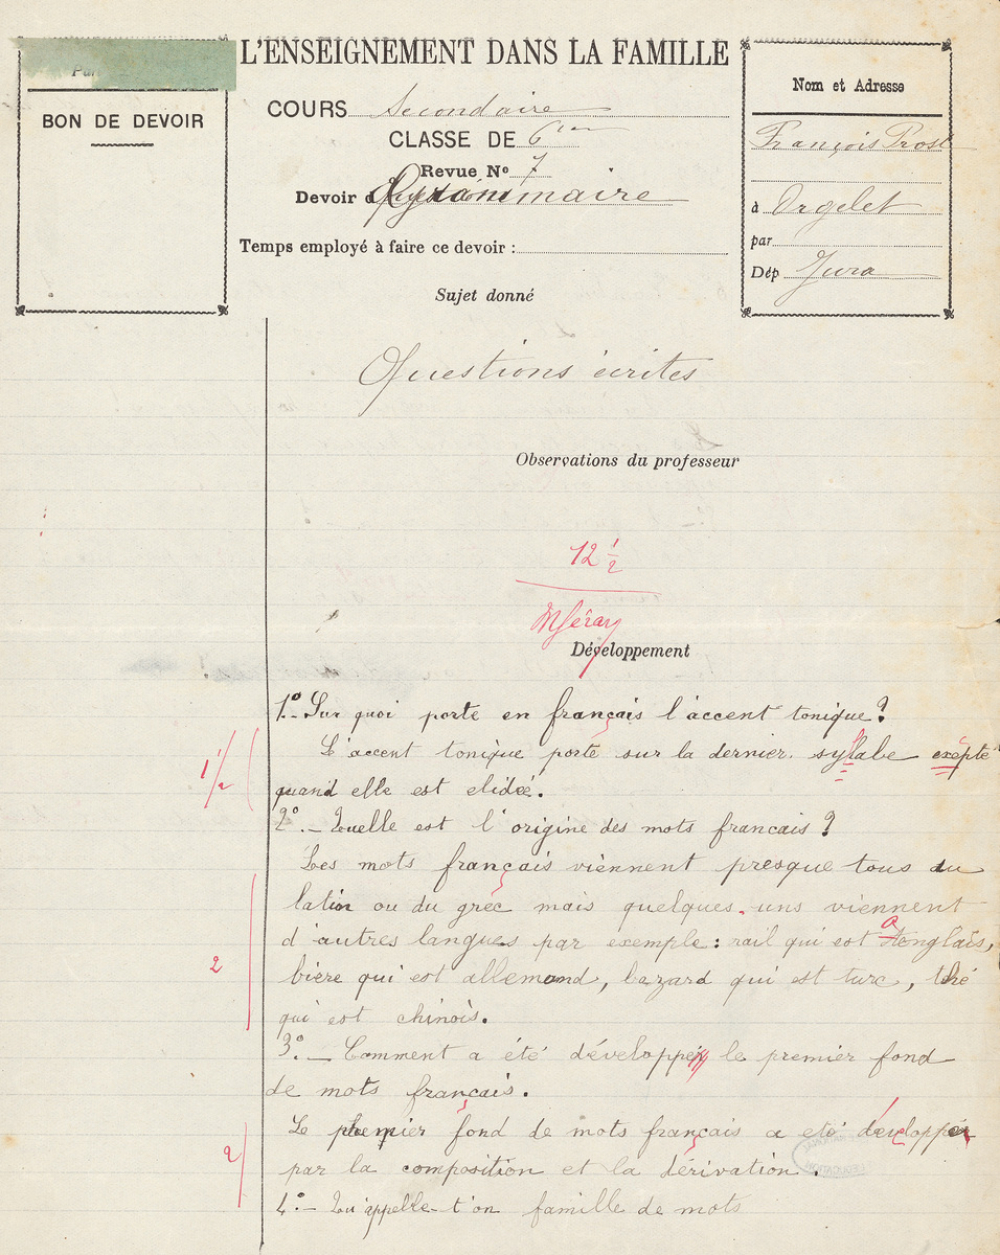 L'ENSEIGNEMENT DANS LA FAMILLE
BON DE DEVOIR
COURS Secondaire
CLASSE DE 6ème
Revue Nº 7
Devoir de Grammaire
Temps employé à faire ce devoir :
Nom et Adresse
François Prost
à Orgelet
par
Dép Jura
Sujet donné
Questions écrites
Observations du professeur
12 1/2
Développement
1.º Sur quoi porte en français l'accent tonique ?
L'accent tonique porte sur la dernier syllabe exepté
quand elle est elideé.
1 1/2
2º. – Quelle est l'origine des mots francais ?
Les mots français viennent presque tous du
latin ou du grec mais quelques-uns viennent
d'autres langues par exemple : rail qui est anglais,
bière qui est allemand, bazard qui est turc, thé
qui est chinois.
2
3º. – Comment a été développer le premier fond
de mots français.
Le premier fond de mots français a eté développer
par la composition et la dérivation.
2
4º. – Qu'appelle-t'on famille de mots